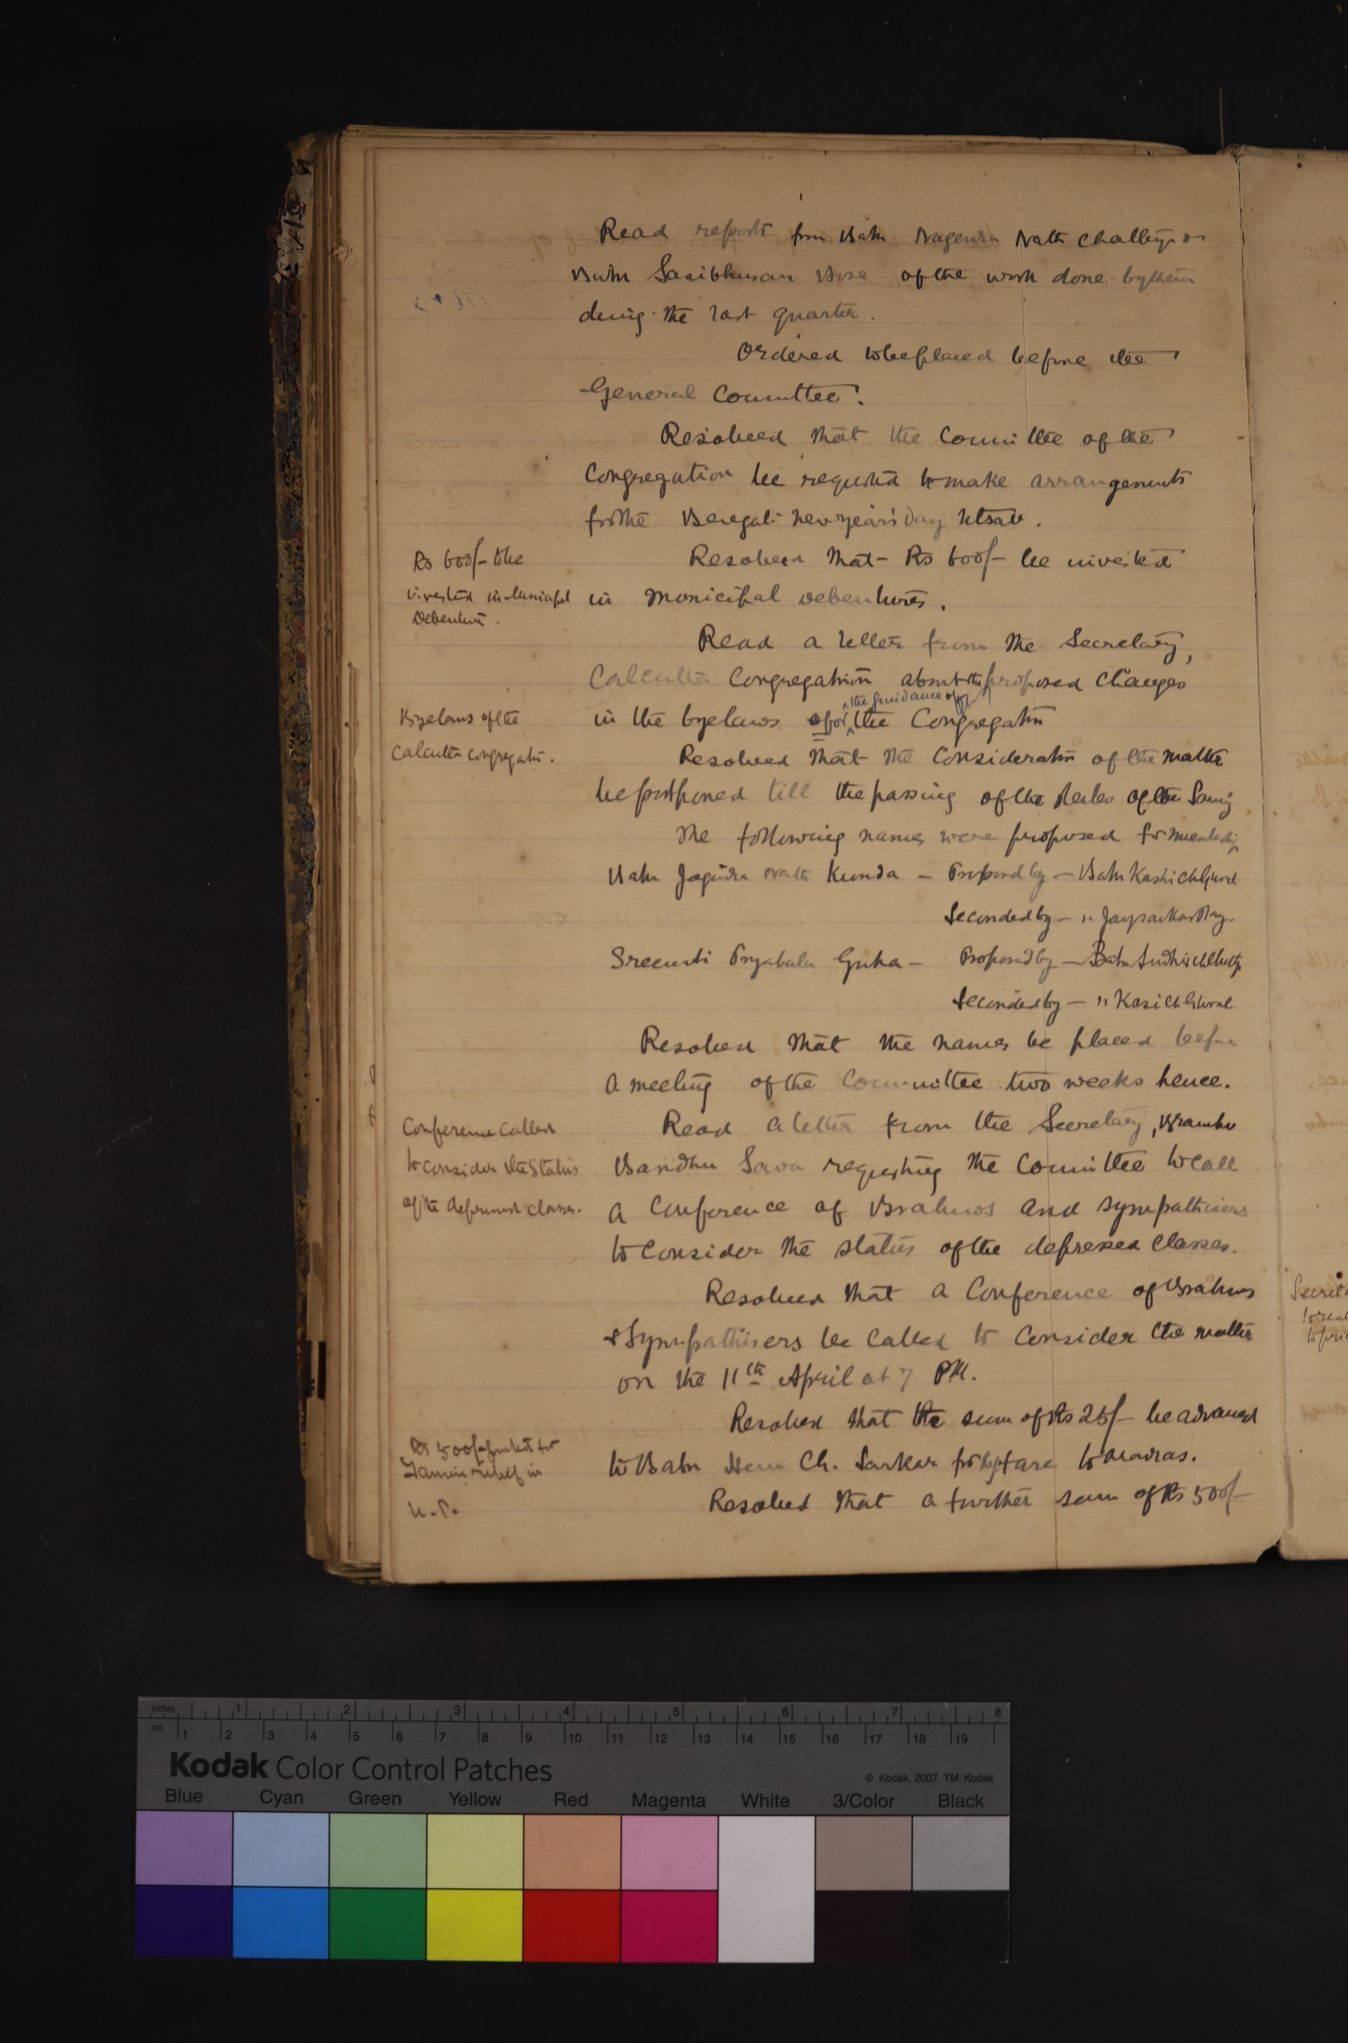 Read reports from Babu Nagendra Nath Chatterji &
Babu Sasibhusan Bose of the work done by them
during the last quarter.
Ordered to be placed before the
General Committee.
Resolved that the Committee of the
Congregation be requested to make arrangements
for the Bengali new year's day Utsab.
Rs 600/- to be
invested in Municipal
Debentures.
Resolved that Rs 600/- be invested
in Municipal Debentures.
Read a letter from the Secretary,
Calcutta Congregation about the proposed changes
in the byelaws of for the guidance of the Congregation
Byelaws of the
Calcutta Congregation.
Resolved that the Consideration of the matter
be postponed till the passing of the Rules of the Samaj
The following names were proposed for membership
Babu Jogendra Nath Kunda - Proposed by - Babu Kashi Ch Ghosal
Seconded by - "
Sreemati Priyabala Guha - Proposed by - Babu
Seconded by - " Kasi Ch Ghosal
Resolved that the names be placed before
a meeting of the Committee two weeks hence.
Conference called
to consider the status
of the depressed classes.
Read a letter from the Secretary, Bramho
Bandhu Sava requesting the Committee to call
a Conference of Brahmos and sympathisers
to consider the status of the depressed classes.
Resolved that a Conference of Brahmos
& Sympathisers be called to consider the matter
on the 11th April at 7 PM.
Resolved that the sum of Rs 25/- be advanced
to Babu Hem Ch. Sarkar for his fare to Madras.
Rs 500/- granted for
Famine relief in
U.P.
Resolved that a further sum of Rs 500/-
inches 1 2 3 4 5 6 7 8
cm 1 2 3 4 5 6 7 8 9 10 11 12 13 14 15 16 17 18 19
Kodak Color Control Patches
© Kodak, 2007 TM: Kodak
Blue Cyan Green Yellow Red Magenta White 3/Color Black